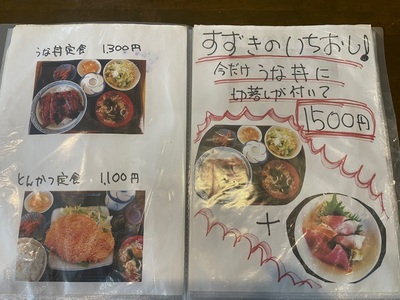 うな丼定食 1,300円
とんかつ定食 1,100円
すずきのいちおし!
今だけ うな丼に
切落しが付いて
1500円
+